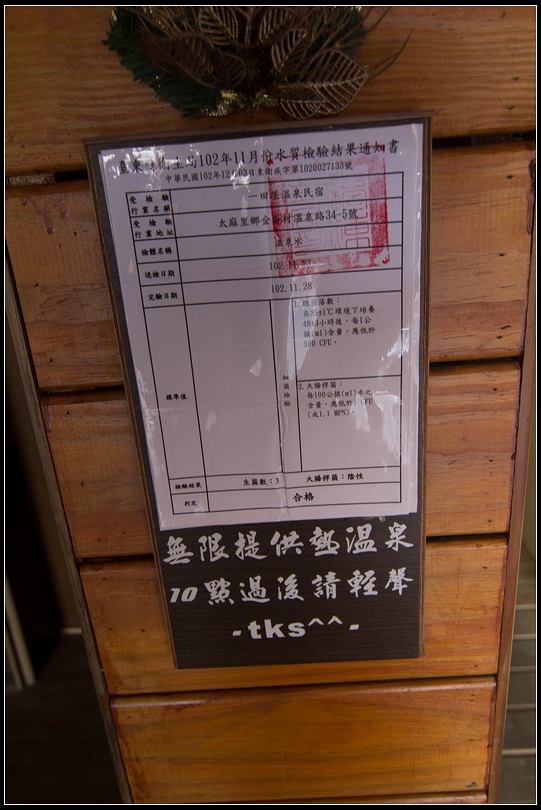 臺東縣衛生局102年11月份水質檢驗結果通知書
中華民國102年12月03日東衛疾字第1020027133號
受檢驗行業名稱 一田屋溫泉民宿
受檢驗行業地址 太麻里鄉金崙村溫泉路34-5號
檢體名稱 溫泉水
送檢日期 102.11.
完驗日期 102.11.28
標準值
細菌檢驗
1.總菌落數：
在35±1℃環境下培養
48±3小時後，每1公
撮(ml)含量，應低於
500 CFU。
2.大腸桿菌：
每100公撮(ml)水之
含量，應低於1 CFU
(或1.1 MPN)。
檢驗結果 生菌數：3 大腸桿菌：陰性
判定 合格
無限提供熱溫泉
10點過後請輕聲
-tks^^-